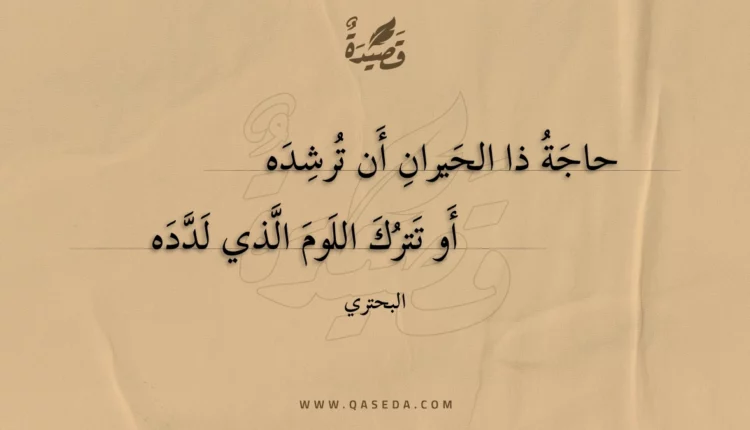 قَصِيدَةٌ
حاجَةُ ذا الحَيرانِ أَن تُرشِدَه
أَو تَترُكَ اللَومَ الَّذي لَدَّدَه
البحتري
WWW.QASEDA.COM